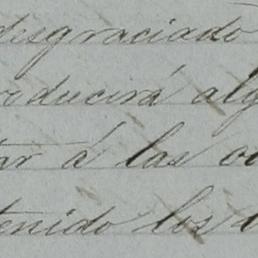 desgraciado
oducirá alg
tar á las o
tenido los